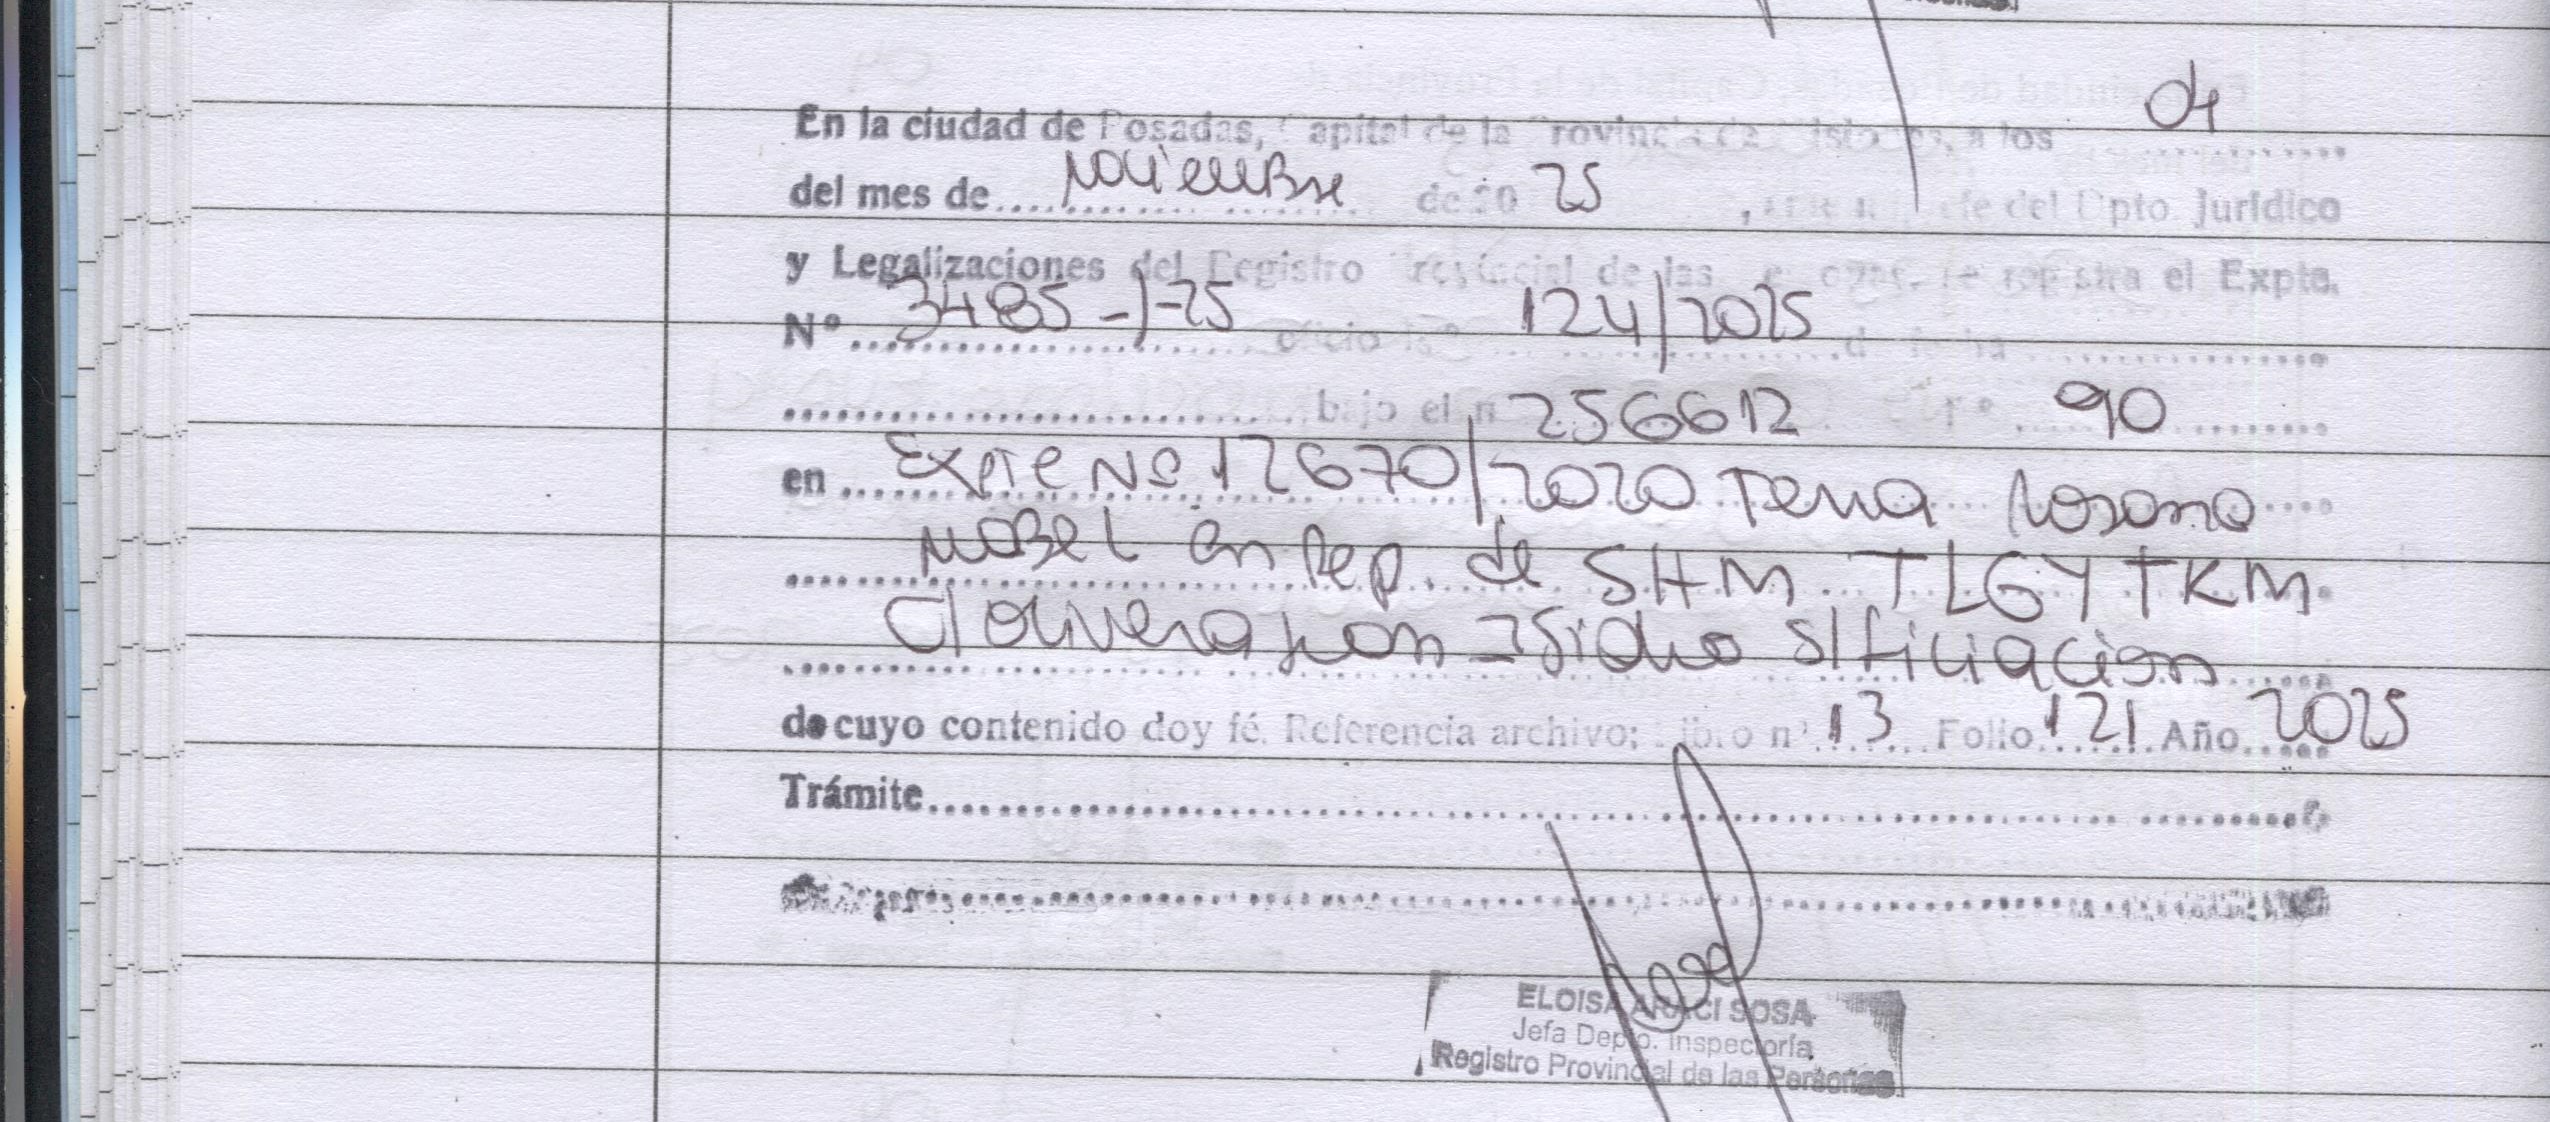 04
En la ciudad de Posadas, Capital de la Provincia de Misiones, a los
del mes de Noviembre de 20 25, ante mi Jefe del Dpto. Jurídico
y Legalizaciones del Registro Provincial de las Personas, se registra el Expte.
Nº 3485-J-25 oficio 124/2025 de fecha
bajo el n 256612 90
en Expte Nº 12670/2020 Rosana
Mabel en Rep. de SHM. TLG Y TKM
C/ Olivera Juan Isidro S/ Filiación
de cuyo contenido doy fé. Referencia archivo; libro nº 13 Folio 121 Año 2025
Trámite
ELOISA ARACI SOSA
Jefa Depto. Inspectoría
Registro Provincial de las Personas